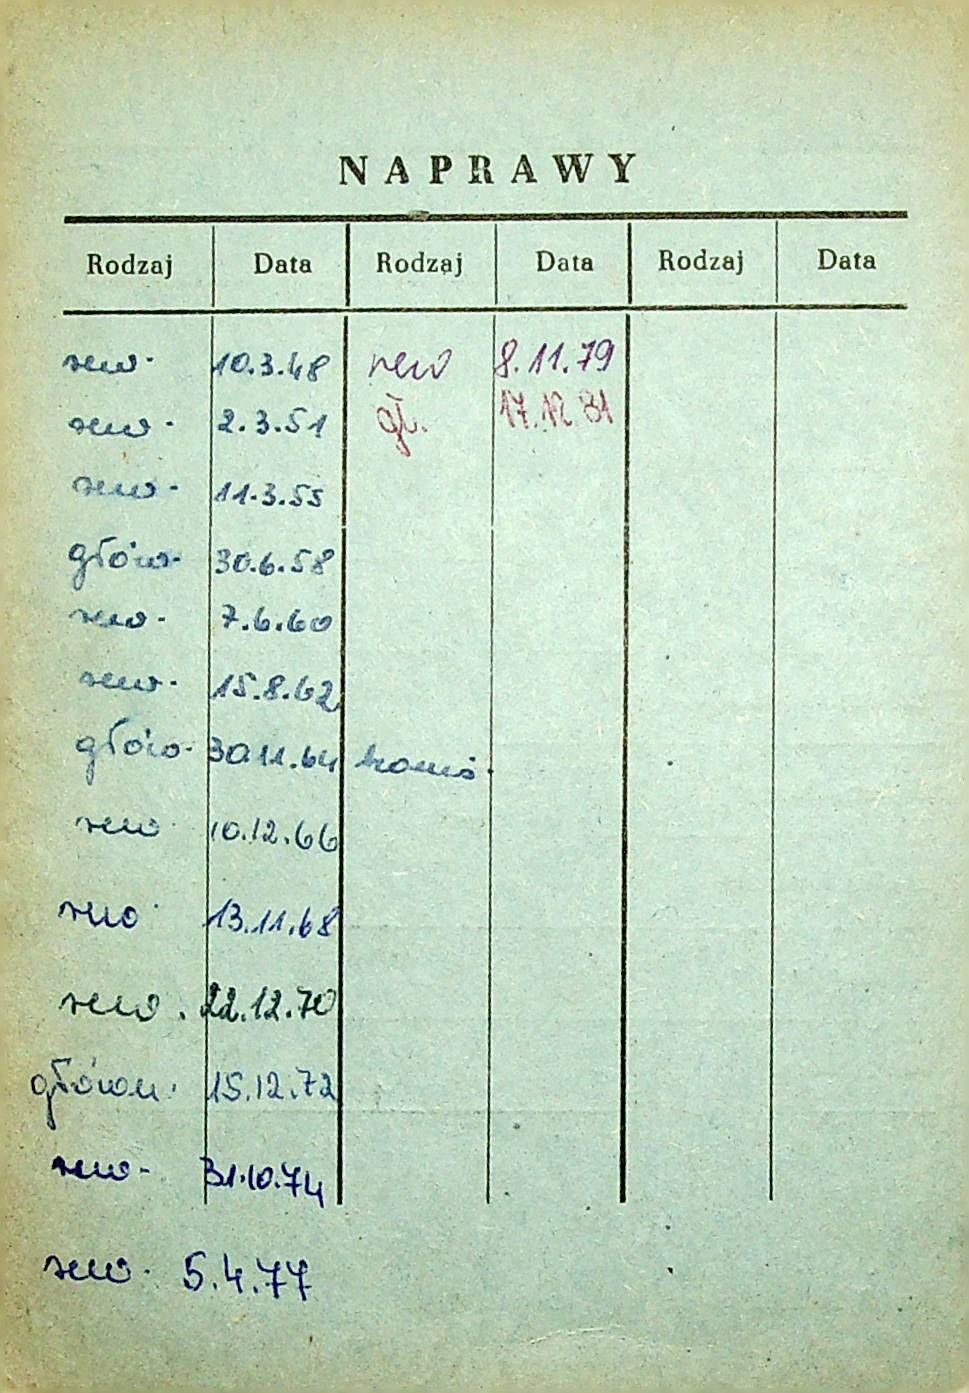 NAPRAWY
Rodzaj Data Rodzaj Data Rodzaj Data
rew. 10.3.48 rew 8.11.79
rew. 2.3.51 gł. 17.12.81
rew. 11.3.55
główn. 30.6.58
rew. 7.6.60
rew. 15.8.62
główn. 30.11.64
rew 10.12.66
rew 13.11.68
rew. 22.12.70
główn. 15.12.72
rew. 31.10.74
rew. 5.4.77